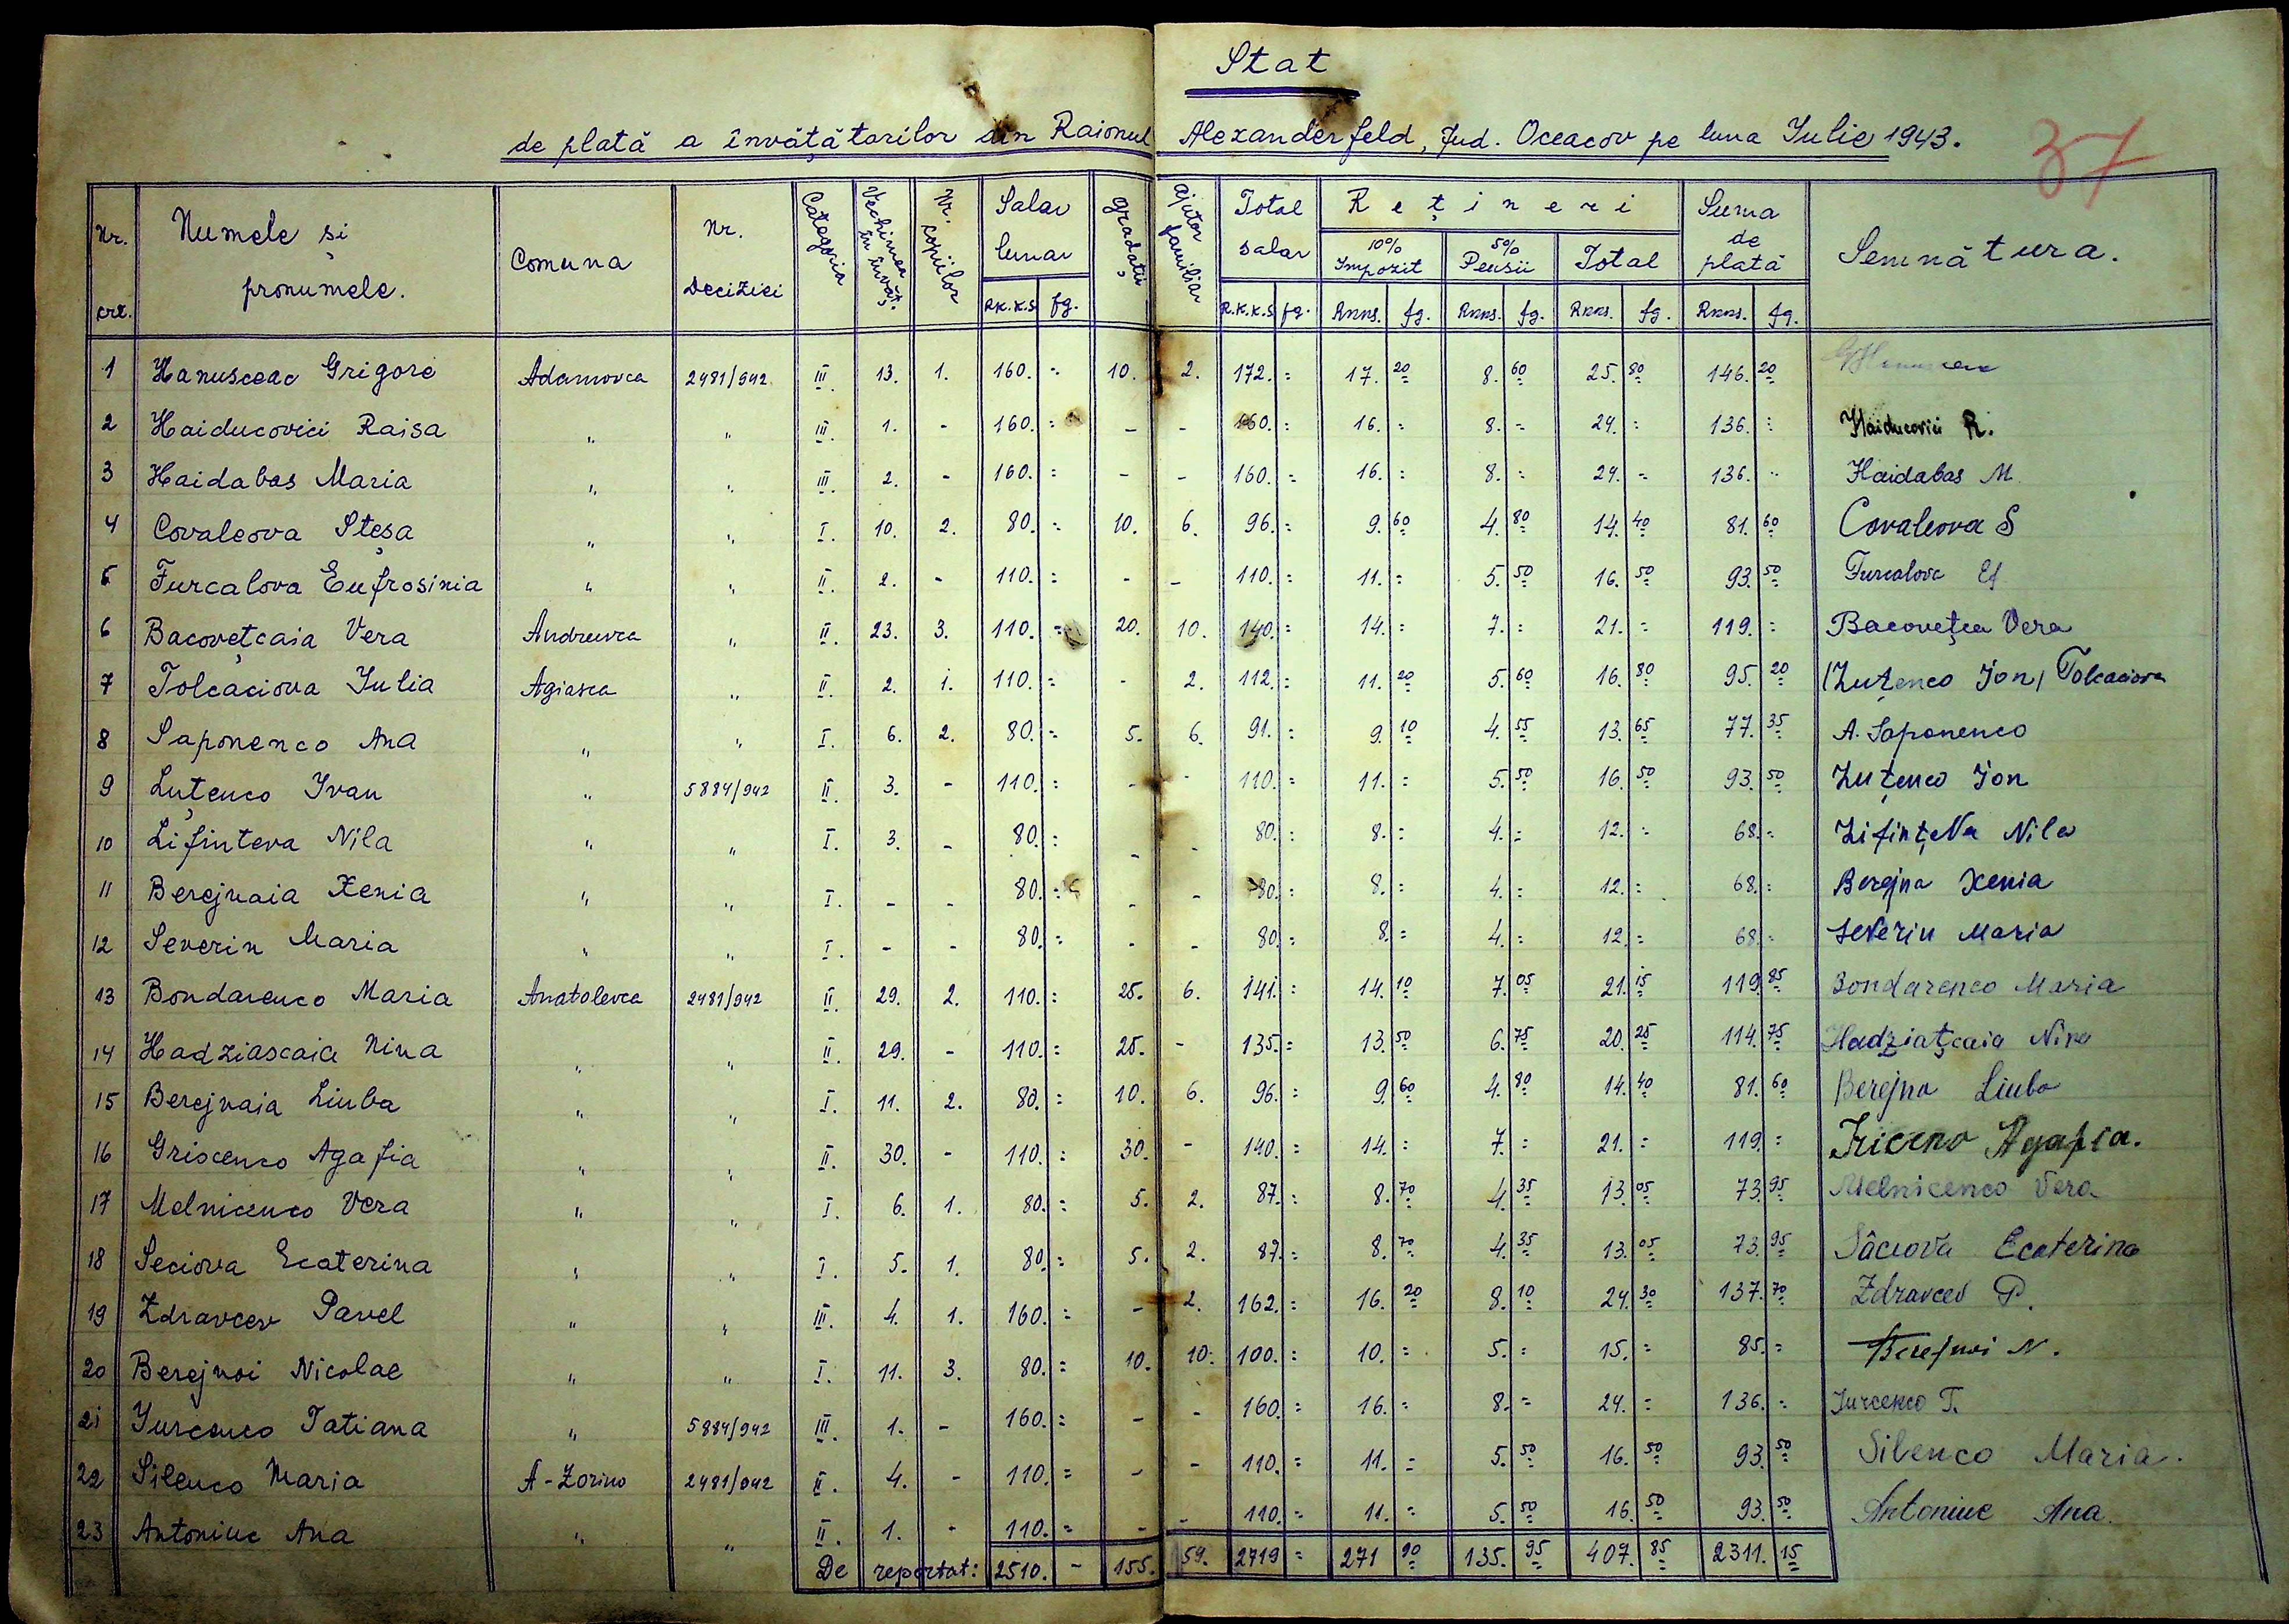 Stat
de plată a învățătorilor din Raionul Alexanderfeld, Jud. Oceacov pe luna Iulie 1943.
37
Nr. crt. Numele și pronumele. Comuna Nr. Deciziei Categoria Vechimea în învăț. Nr. copiilor Salar lunar gradații ajutor familiar Total salar Rețineri Suma de plată Semnătura.
10% Impozit 5% Pensii Total
RK.K.S fg. R.K.K.S fg. RKKS. fg. RKKS. fg. RKKS. fg. RKKS. fg.
1 Hanusceac Grigore Adamovca 2481/942 III. 13. 1. 160. = 10. 2. 172. = 17. 20 8. 60 25. 80 146. 20
2 Haiducovici Raisa " " III. 1. - 160. = - - 160. = 16. = 8. = 24. = 136. = Haiducovici R.
3 Haidabas Maria " " III. 2. - 160. = - - 160. = 16. = 8. = 24. = 136. = Haidabas M
4 Covaleova Steșa " " I. 10. 2. 80. = 10. 6. 96. = 9. 60 4. 80 14. 40 81. 60 Covaleova S
5 Furcalova Eufrosinia " " II. 2. - 110. = - - 110. = 11. = 5. 50 16. 50 93. 50 Furcalova Ef
6 Bacovețcaia Vera Andreevca " II. 23. 3. 110. = 20. 10. 140. = 14. = 7. = 21. = 119. = Bacovețca Vera
7 Tolcaciova Iulia Agiasca " II. 2. 1. 110. = - 2. 112. = 11. 20 5. 60 16. 80 95. 20 (Luțenco Ion) Tolcaciova
8 Saponenco Ana " " I. 6. 2. 80. = 5. 6. 91. = 9. 10 4. 55 13. 65 77. 35 A. Saponenco
9 Luțenco Ivan " 5884/942 II. 3. - 110. = - - 110. = 11. = 5. 50 16. 50 93. 50 Luțenco Ion
10 Lifinteva Nila " " I. 3. - 80. = - - 80. = 8. = 4. = 12. = 68. = Lifințeva Nila
11 Berejnaia Xenia " " I. - - 80. = - - 80. = 8. = 4. = 12. = 68. = Berejna Xenia
12 Severin Maria " " I. - - 80. = - - 80. = 8. = 4. = 12. = 68. = Severin Maria
13 Bondarenco Maria Anatolevca 2481/942 II. 29. 2. 110. = 25. 6. 141. = 14. 10 7. 05 21. 15 119. 85 Bondarenco Maria
14 Hadziascaia Nina " " II. 29. - 110. = 25. - 135. = 13. 50 6. 75 20. 25 114. 75 Hadziațcaia Nina
15 Berejnaia Liuba " " I. 11. 2. 80. = 10. 6. 96. = 9. 60 4. 80 14. 40 81. 60 Berejna Liuba
16 Griscenco Agafia " " II. 30. - 110. = 30. - 140. = 14. = 7. = 21. = 119. = Agafia.
17 Melnicenco Vera " " I. 6. 1. 80. = 5. 2. 87. = 8. 70 4. 35 13. 05 73. 95 Melnicenco Vera
18 Seciova Ecaterina " " I. 5. 1. 80. = 5. 2. 87. = 8. 70 4. 35 13. 05 73. 95 Sâciova Ecaterina
19 Zdravcev Pavel " " III. 4. 1. 160. = - 2. 162. = 16. 20 8. 10 24. 30 137. 70 Zdravcev P.
20 Berejnoi Nicolae " " I. 11. 3. 80. = 10. 10. 100. = 10. = 5. = 15. = 85. = Berejnoi N.
21 Iurcenco Tatiana " 5884/942 III. 1. - 160. = - - 160. = 16. = 8. = 24. = 136. = Iurcenco T.
22 Silenco Maria A-Zorino 2481/942 II. 4. - 110. = - - 110. = 11. = 5. 50 16. 50 93. 50 Silenco Maria.
23 Antoniuc Ana " " II. 1. - 110. = - - 110. = 11. = 5. 50 16. 50 93. 50 Antoniuc Ana.
De reportat: 2510. - 155. 59. 2719 = 271 90 135. 95 407. 85 2311. 15